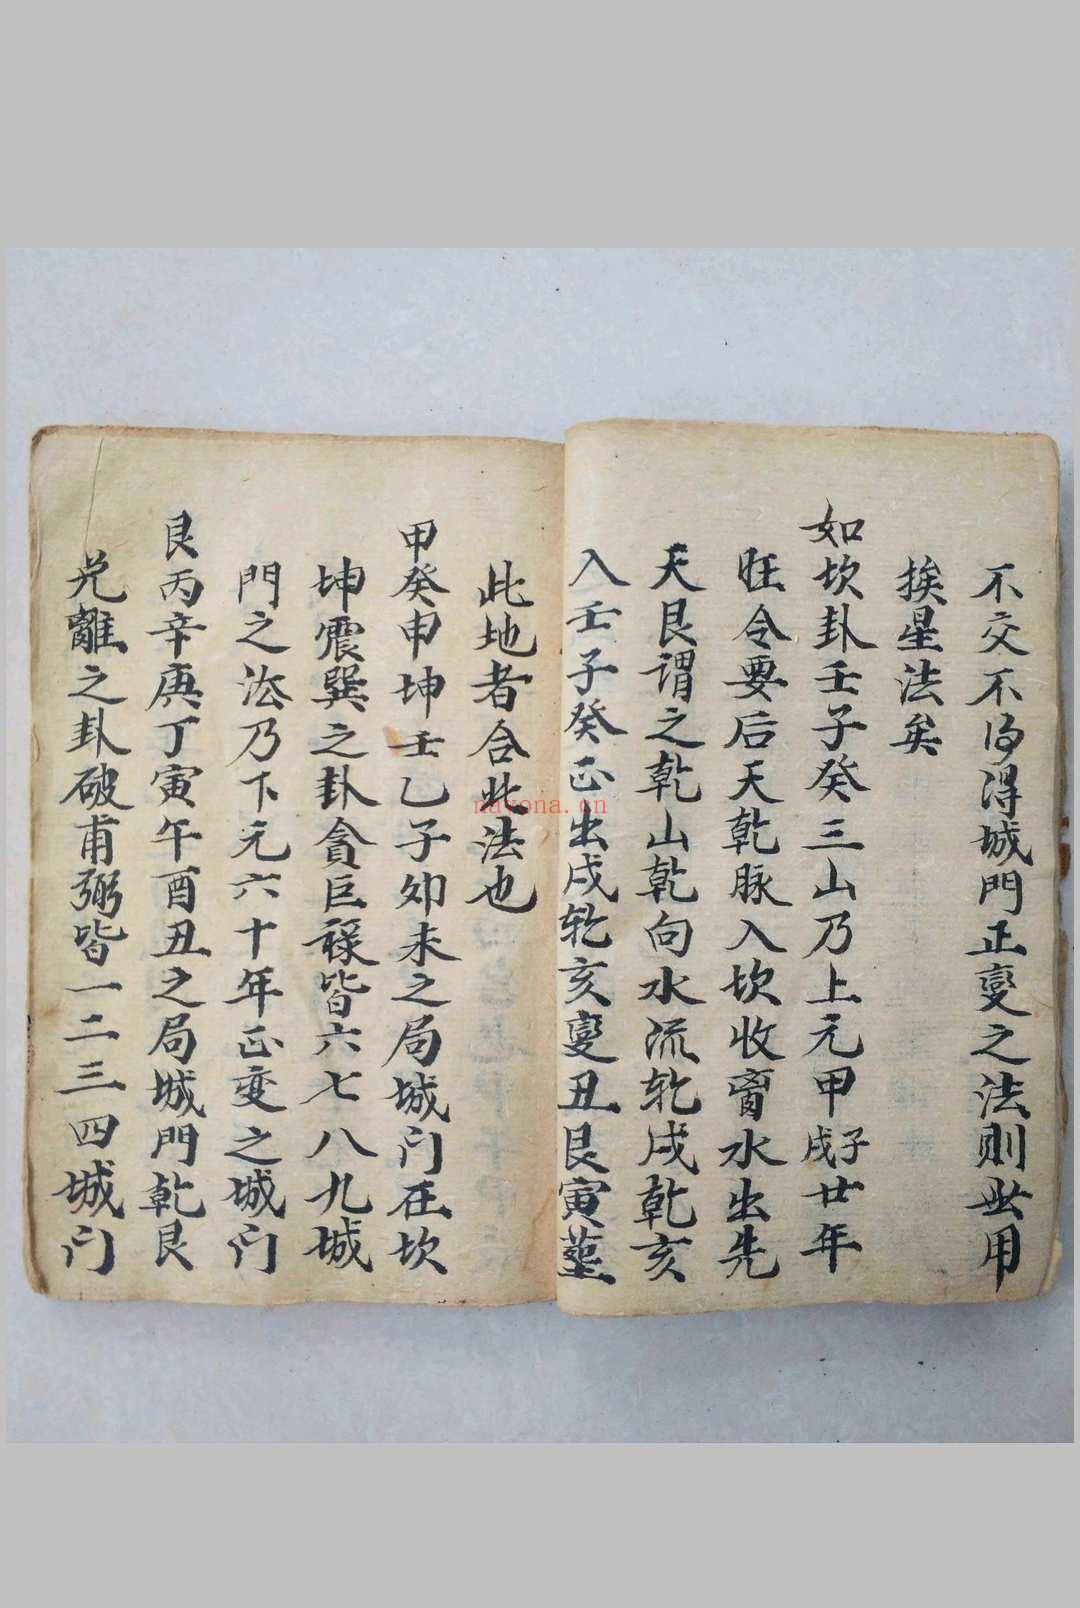 不交不得城門正變之法則無用
挨星法矣
如坎卦壬子癸三山乃上元甲子戌廿年
旺令要后天乾脉入坎收水出先
天艮謂之乾山乾向水流乾戌乾亥
入壬子癸正出戌乾亥變丑艮寅塟
此地者合此法也
甲癸申坤壬乙子卯未之局城门在坎
坤震巽之卦貪巨祿皆六七八九城
門之法乃下元六十年正变之城门
艮丙辛庚丁寅午酉丑之局城門乾艮
兑離之卦破甫弼皆一二三四城门
nayona.cn